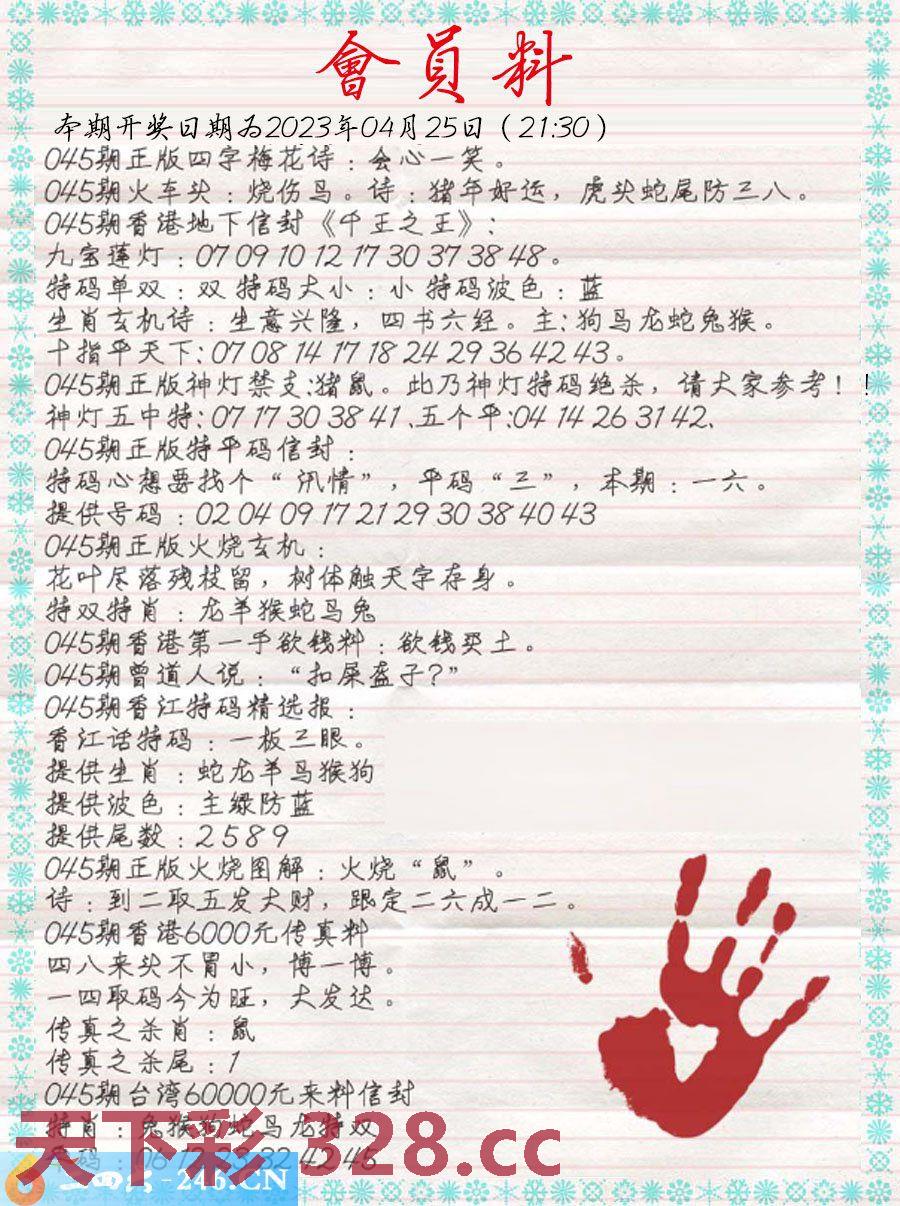 會員料
本期开奖日期为2023年04月25日（21:30）
045期正版四字梅花诗：会心一笑。
045期火车头：烧伤鸟。诗：猪年好运，虎头蛇尾防三八。
045期香港地下信封《千王之王》：
九宝莲灯：07 09 10 12 17 30 37 38 48。
特码单双：双 特码大小：小 特码波色：蓝
生肖玄机诗：生意兴隆，四书六经。主：狗马龙蛇兔猴。
十指平天下：07 08 14 17 18 24 29 36 42 43。
045期正版神灯禁支：猪鼠。此乃神灯特码绝杀，请大家参考！！
神灯五中特：07 17 30 38 41、五个平：04 14 26 31 42、
045期正版特平码信封：
特码心想要找个“汛情”，平码“三”，本期：一六。
提供号码：02 04 09 17 21 29 30 38 40 43
045期正版火烧玄机：
花叶尽落残枝留，树体触天字存身。
特双特肖：龙羊猴蛇马兔
045期香港第一手欲钱料：欲钱买土。
045期曾道人说：“扣屎盔子?”
045期香江特码精选报：
香江话特码：一板三眼。
提供生肖：蛇龙羊马猴狗
提供波色：主绿防蓝
提供尾数：2 5 8 9
045期正版火烧图解：火烧“鼠”。
诗：到二取五发大财，跟定二六成一二。
045期香港6000元传真料
四八来头不胃小，博一博。
一四取码今为旺，大发达。
传真之杀肖：鼠
传真之杀尾：1
045期台湾60000元来料信封
特肖：兔猴狗蛇马龙特双
42 45
天下彩 328.cc
二四六-246.CN